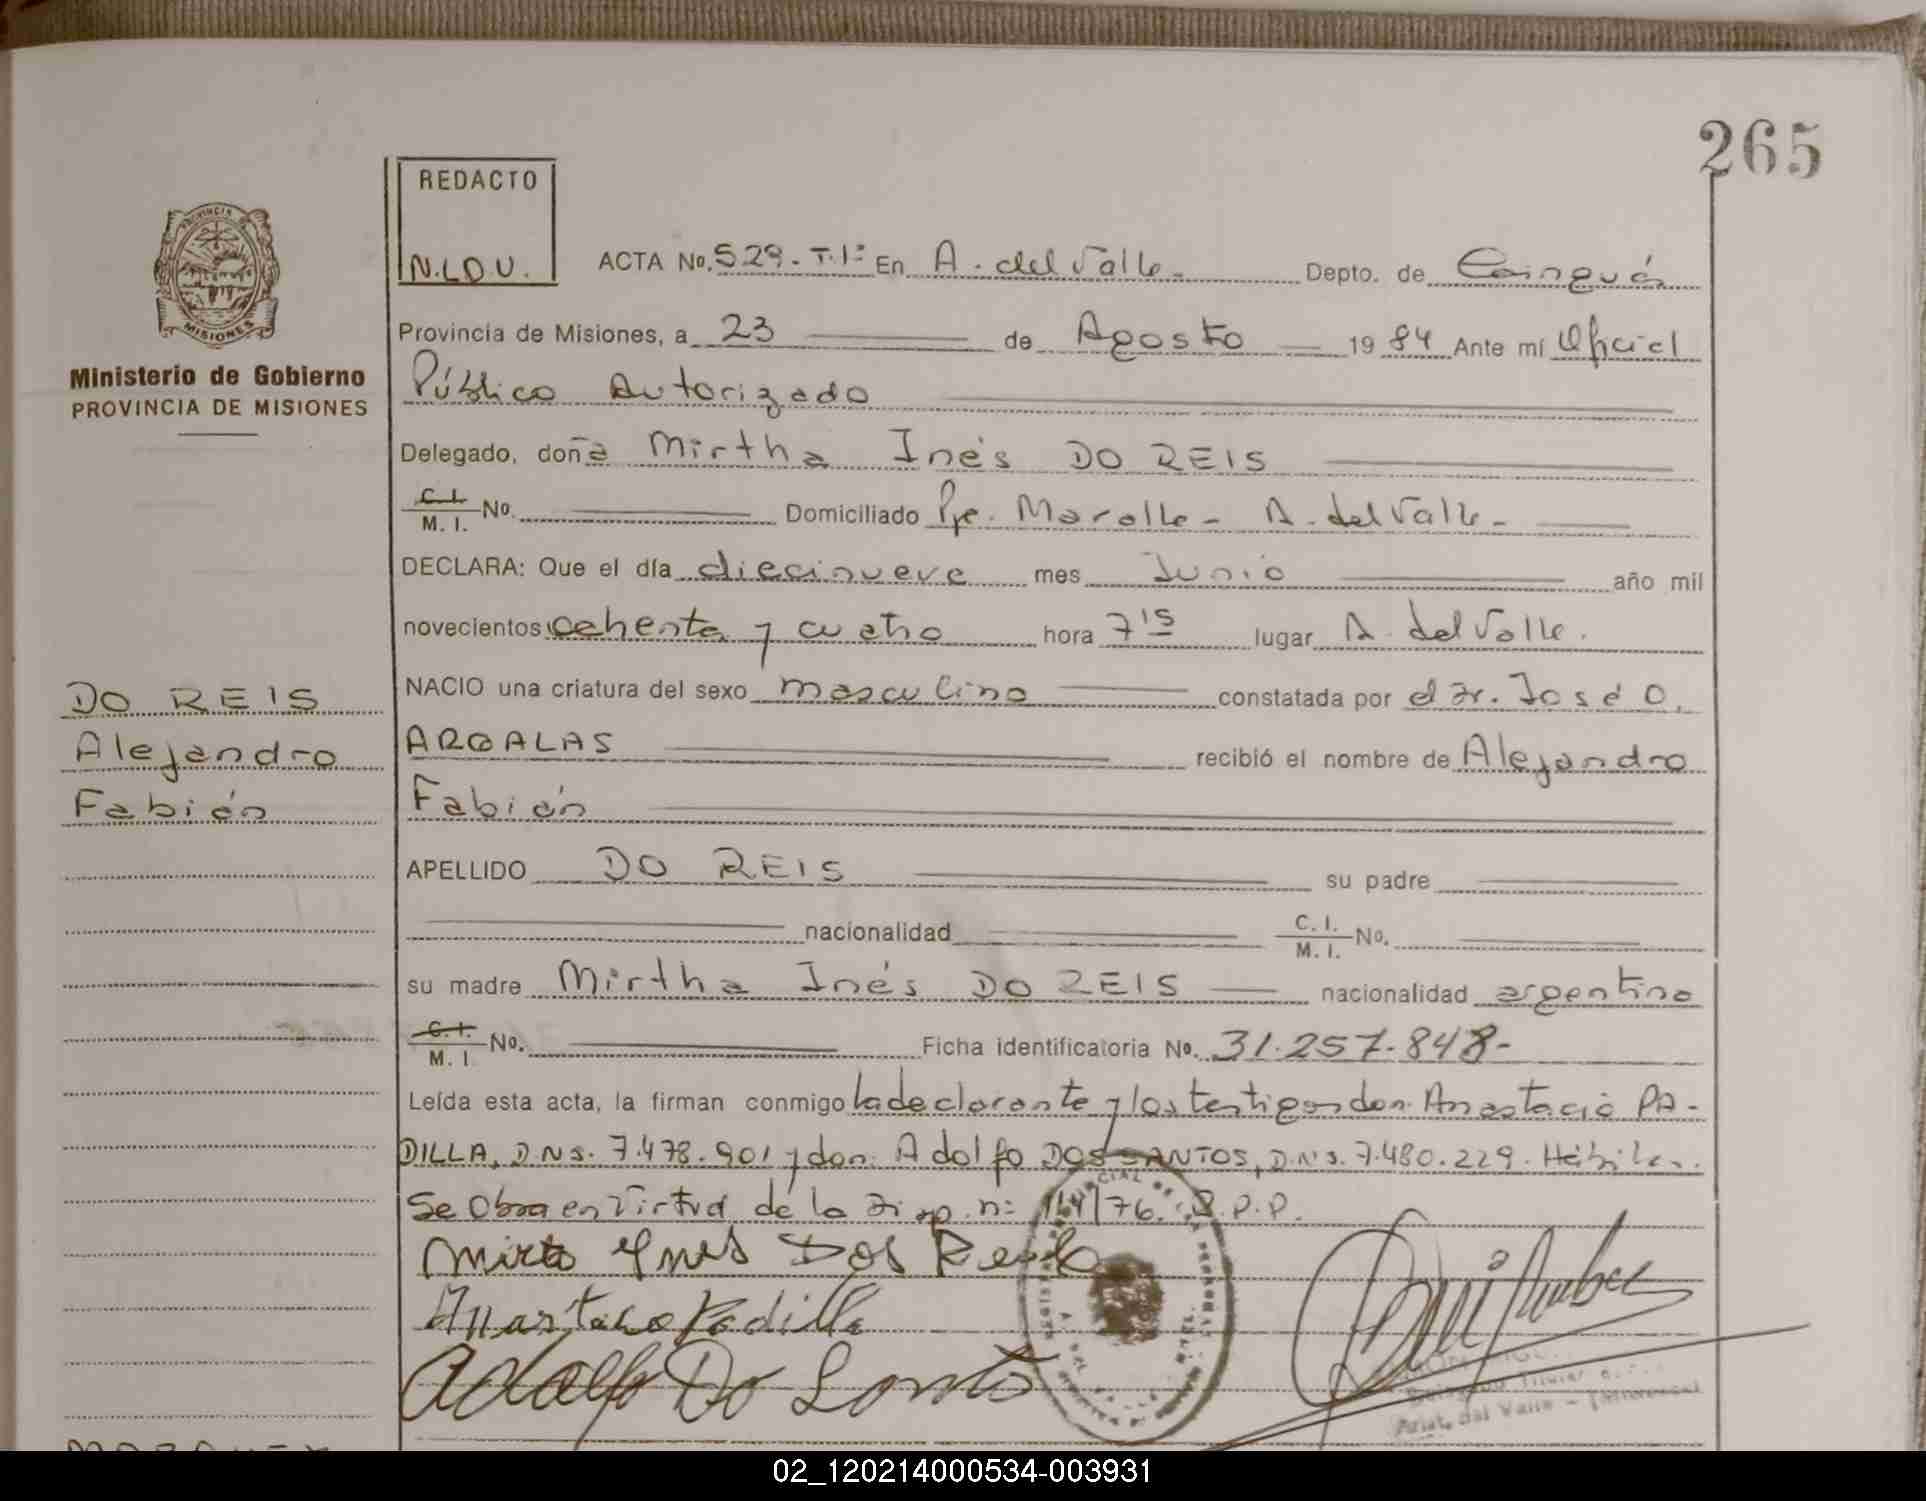 265
REDACTO
N.L.D.U.
PROVINCIA DE
MISIONES
Ministerio de Gobierno
PROVINCIA DE MISIONES
ACTA No. 529-T.1º En A. del Valle Depto. de Cainguás
Provincia de Misiones, a 23 de Agosto 1984 Ante mí Oficial
Público Autorizado
Delegado, doña Mirtha Inés DO REIS
C.I. M.I. No. Domiciliado Pje. Marolle - A. del Valle -
DECLARA: Que el día diecinueve mes Junio año mil
novecientos ochenta y cuatro hora 7 15 lugar A. del Valle.
NACIO una criatura del sexo masculino constatada por el Dr. José O.
DO REIS
Alejandro
Fabián
ARGALAS recibió el nombre de Alejandro
Fabián
APELLIDO DO REIS su padre
nacionalidad C. I. M. I. No.
su madre Mirtha Inés DO REIS nacionalidad argentina
C.I. M. I. No. Ficha identificatoria No. 31.257.848-
Leída esta acta, la firman conmigo la declarante y los testigos don Anastacio PA-
DILLA, D.N.I. 7.478.901 y don Adolfo DOS SANTOS, D.N.I. 7.480.229. Hábiles.
Se Obra en Virtud de la Disp. nº 114/76. D.P.P.
Mirta Ynes Dos Reis
Anastacio Padilla
Adolfo Do Santo
Arist. del Valle -
02_120214000534-003931